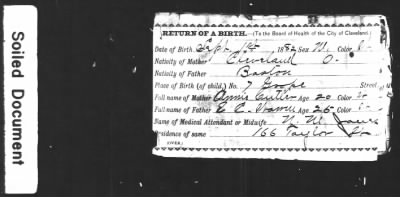 Soiled Document
RETURN OF A BIRTH.—(To the Board of Health of the City of Cleveland.)
Date of Birth, Sept. 1st 1882 Sex M. Color
Nativity of Mother Cleveland O.
Nativity of Father Boston
Place of Birth (of child.) No. 7 Street
Full name of Mother Annie Cutler Age 20 Color
Full name of Father E. C. Age 25 Color
Name of Medical Attendant or Midwife N. M. Jones
Residence of same 166 Taylor St
(OVER.)